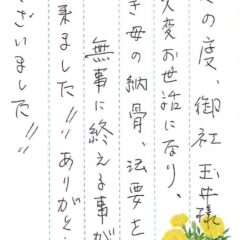 の度、御社 玉井様
大変お世話になり、
き母の納骨、法要を
無事に終える事が
来ました!! ありがと
ございました!!